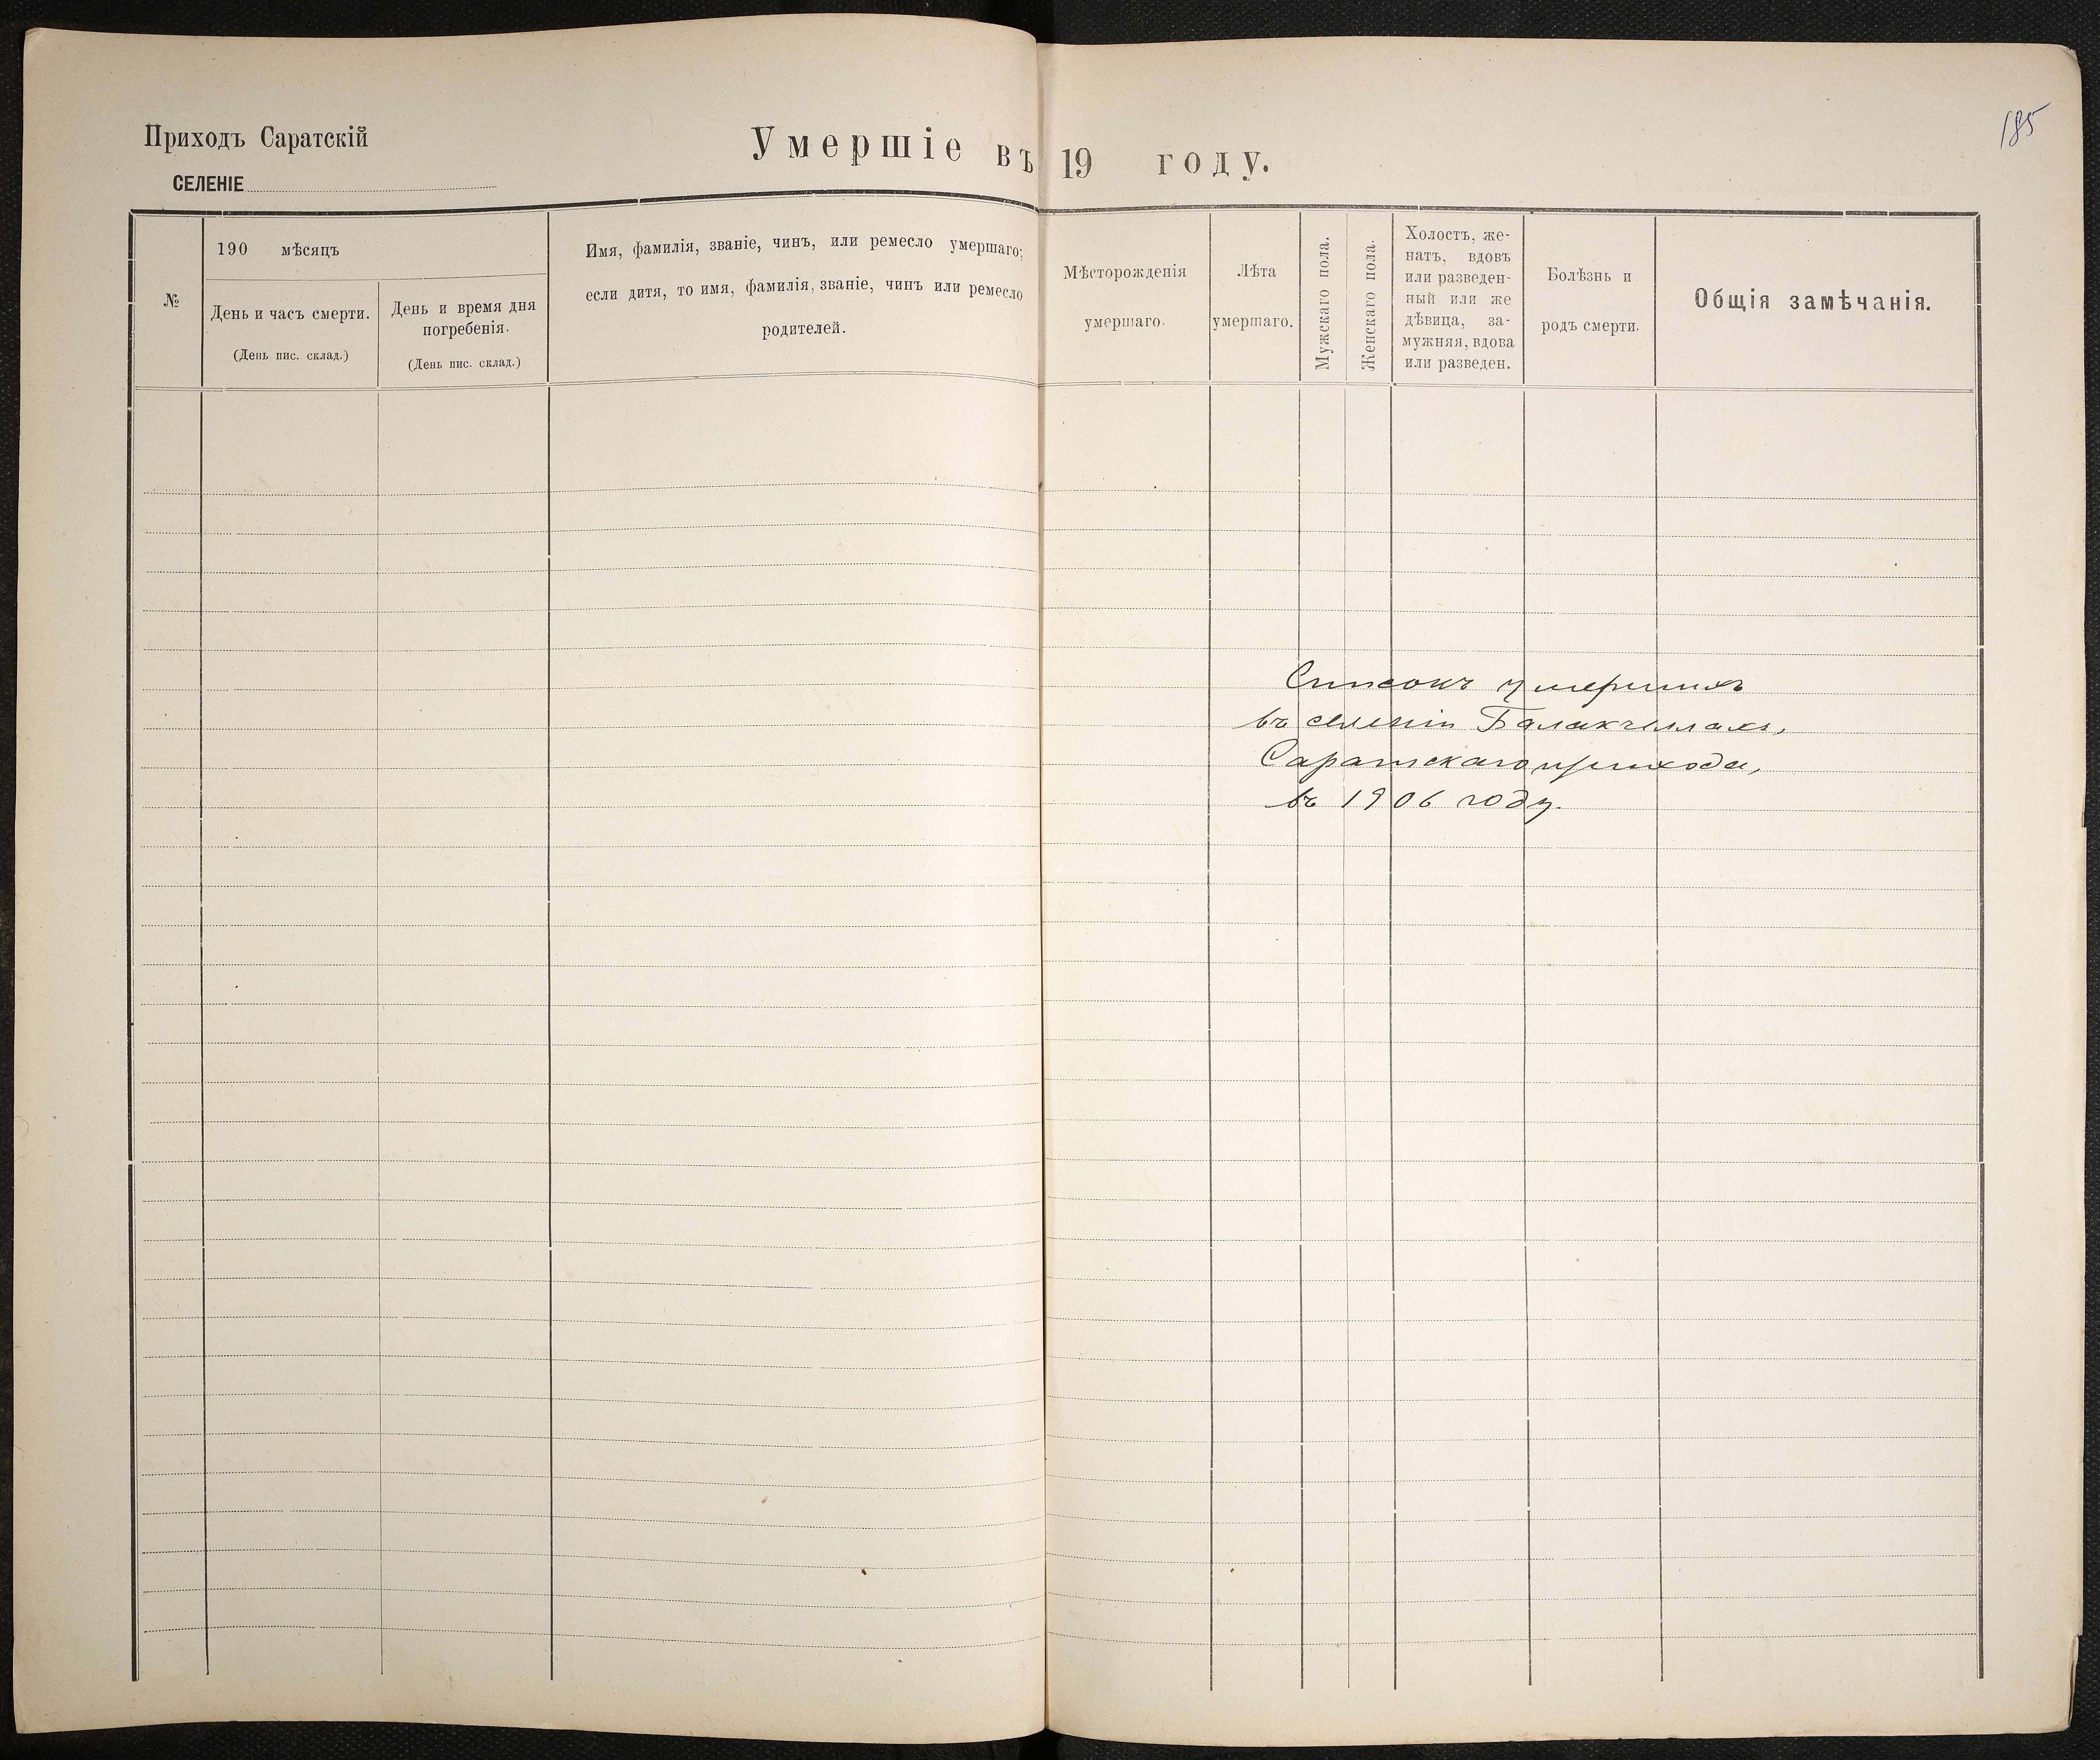 185
Приходъ Саратскій
СЕЛЕНІЕ
Умершіе въ 19 году.
№
190 мѣсяцъ
День и часъ смерти.
(День пис. склад.)
День и время дня
погребенія.
(День пис. склад.)
Имя, фамилія, званіе, чинъ, или ремесло умершаго;
если дитя, то имя, фамилія, званіе, чинъ или ремесло
родителей.
Мѣсторожденія
умершаго.
Лѣта
умершаго.
Мужскаго пола.
Женскаго пола.
Холостъ, же-
натъ, вдовъ
или разведен-
ный или же
дѣвица, за-
мужняя, вдова
или разведен.
Болѣзнь и
родъ смерти.
Общія замѣчанія.
Списокъ умершихъ
въ селеніи
Саратскаго прихода,
въ 1906 году.